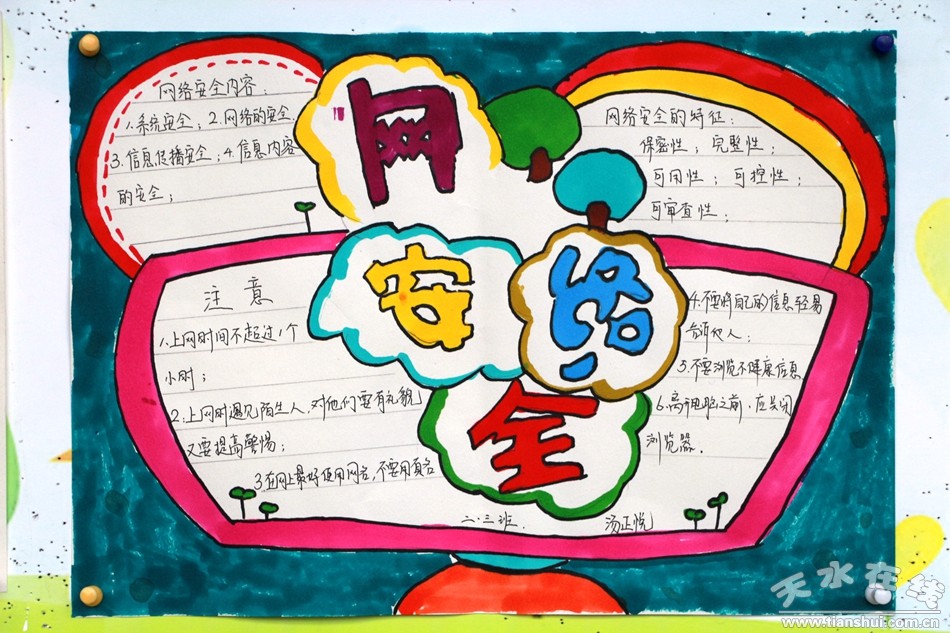 网络安全
网络安全内容:
1.系统安全;2.网络的安全
3.信息传播安全;4.信息内容
的安全;
网络安全的特征:
保密性;完整性;
可用性;可控性;
可审查性;
注意
1.上网时间不超过1个
小时;
2.上网时遇见陌生人,对他们要有礼貌
又要提高警惕;
3.在网上最好使用网名,不要用真名
4.不要将自己的信息轻易
告诉他人;
5.不要浏览不健康信息
6.离开电脑之前,应关闭
浏览器.
二.三班.
汤正悦
天水在线
www.tianshui.com.cn